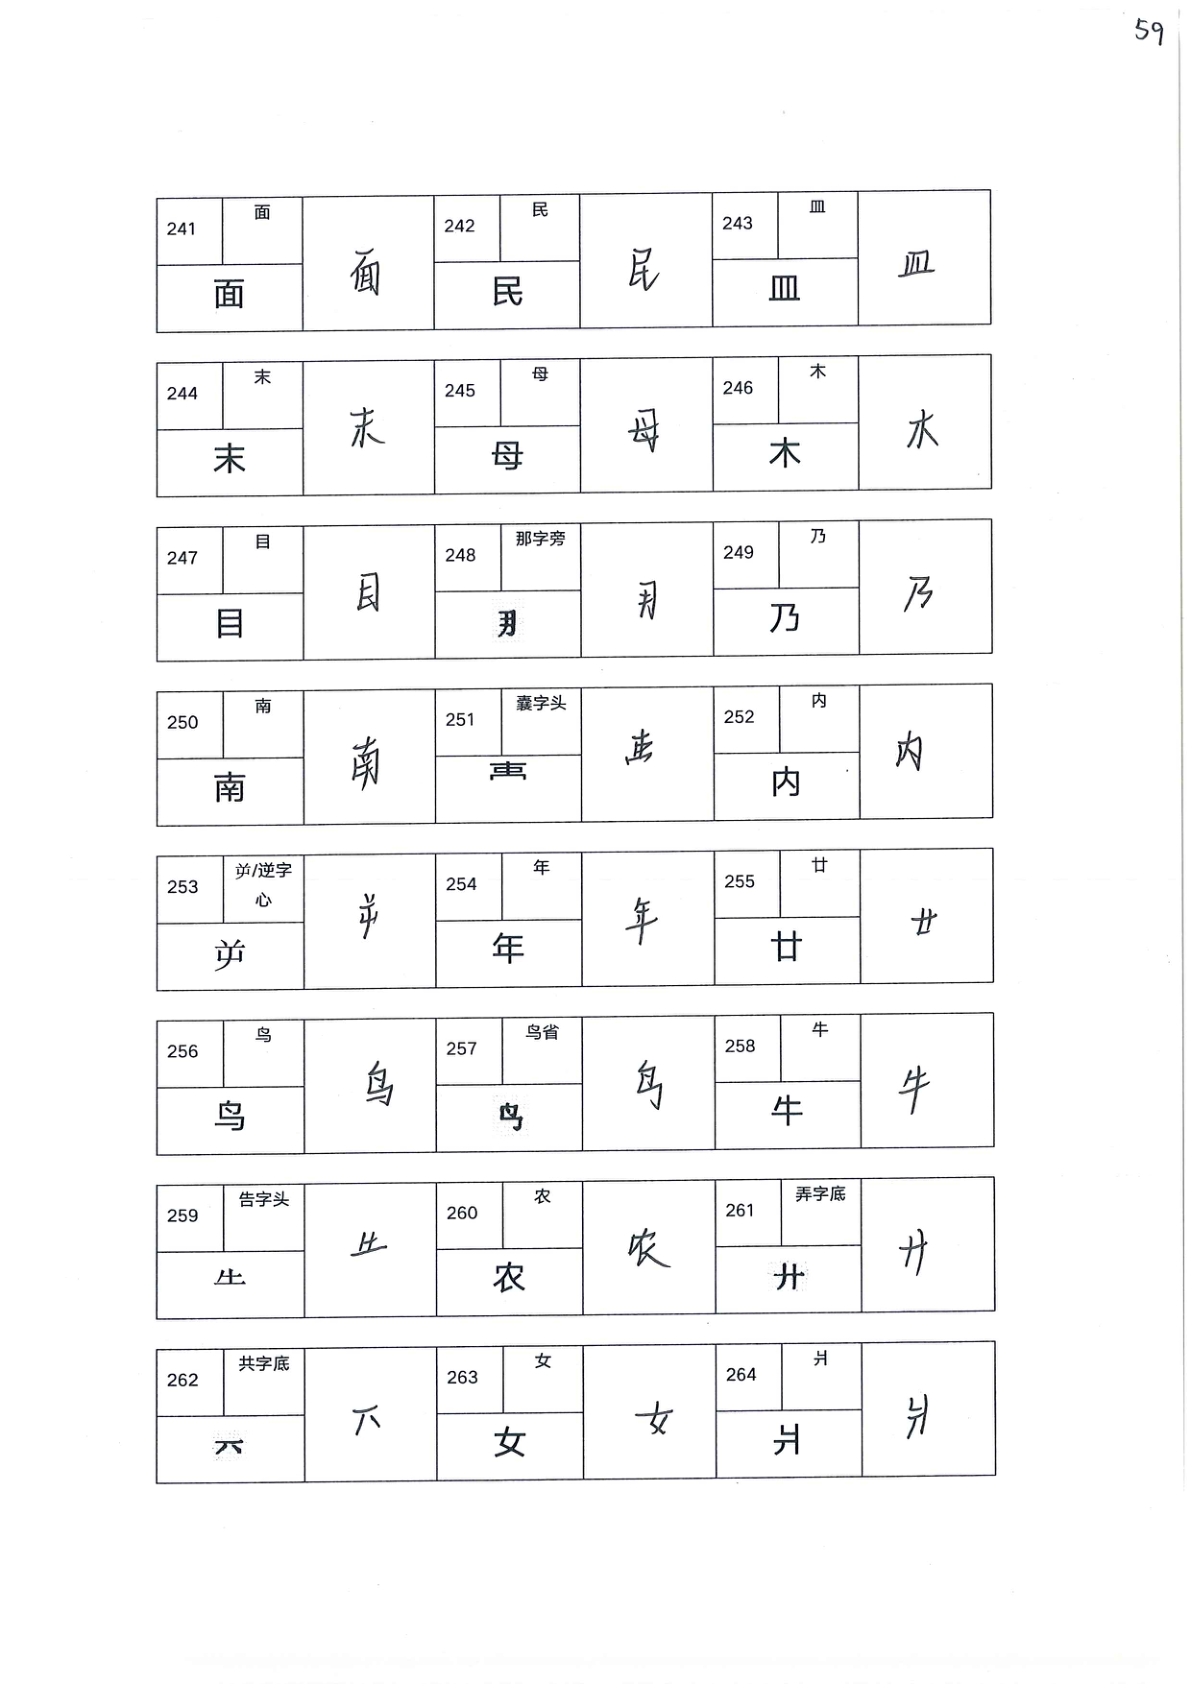 59
241 面 面 面 242 民 民 民 243 皿 皿 皿
244 末 末 末 245 母 母 母 246 木 木 木
247 目 目 目 248 那字旁 249 乃 乃 乃
250 南 南 南 251 囊字头 252 内 内 内
253 屰/逆字心 屰 屰 254 年 年 年 255 廿 廿 廿
256 鸟 鸟 鸟 257 鸟省 258 牛 牛 牛
259 告字头 ⺧ ⺧ 260 农 农 农 261 弄字底 廾 廾
262 共字底 263 女 女 女 264 爿 爿 爿